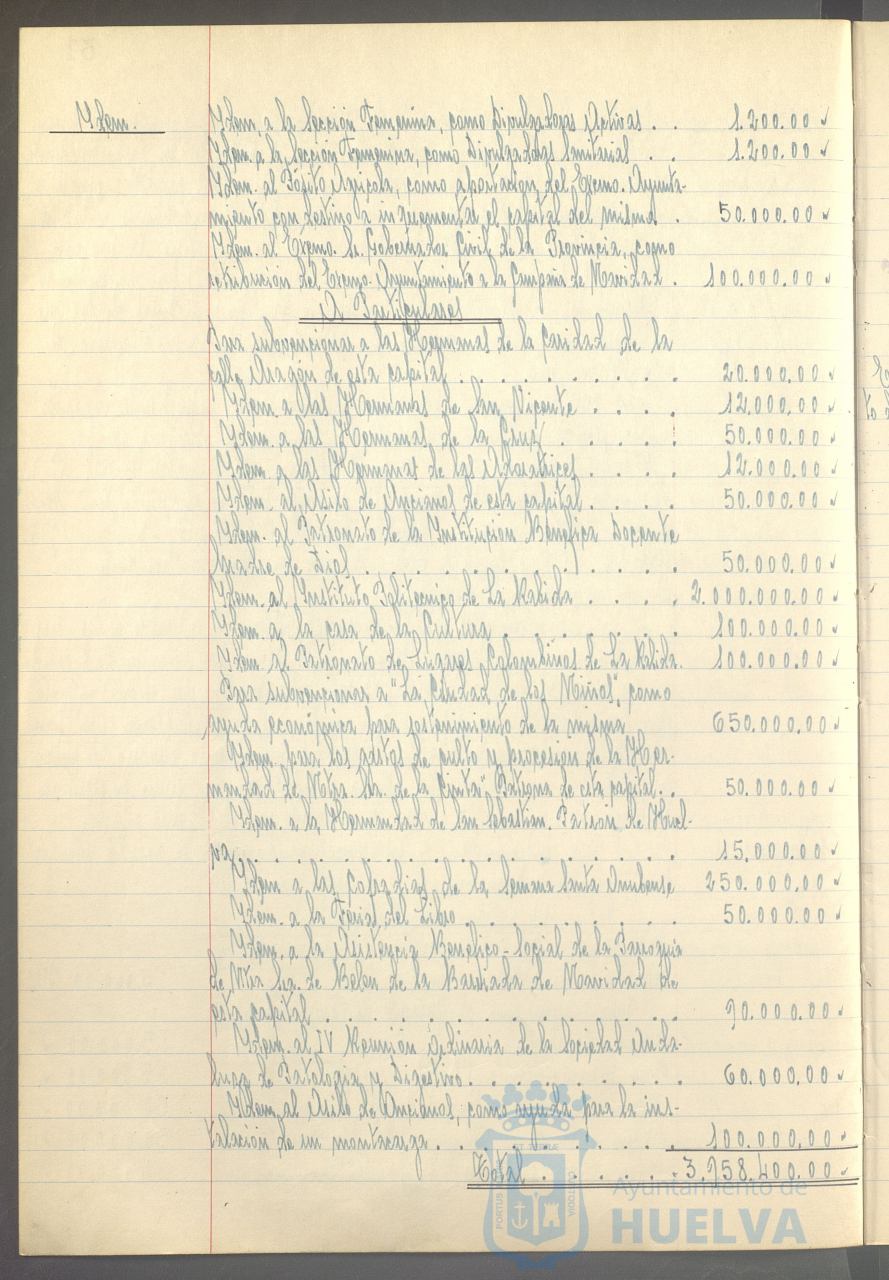 Idem.
Idem, a la Sección Femenina, como Divulgadoras Activas . . 1.200.00
Idem. a la Sección Femenina, como Divulgadoras Sanitarias . . 1.200.00
Idem. al Pósito Agrícola, como aportación del Excmo. Ayunta-
miento con destino a incrementar el capital del mismo . 50.000.00
Idem. al Excmo. Sr. Gobernador Civil de la Provincia, como
retribución del Excmo. Ayuntamiento a la Campaña de Navidad . 100.000.00
A Particulares
Para subvencionar a las Hermanas de la Caridad de la
calle Aragón de esta capital . . . . . . . . 20.000.00
Idem. a las Hermanas de San Vicente . . . . 12.000.00
Idem. a las Hermanas de la Cruz . . . . . 50.000.00
Idem. a las Hermanas de las Adoratrices . . . . 12.000.00
Idem. al Asilo de Ancianos de esta capital . . . . 50.000.00
Idem. al Patronato de la Institución Benéfica Docente
Madre de Dios . . . . . . . . . . . 50.000.00
Idem. al Instituto Politécnico de La Rabida . . . . 2.000.000.00
Idem. a la casa de la Cultura . . . . . . . 100.000.00
Idem al Patronato de Lugares Colombinos de La Rabida. 100.000.00
Para subvencionar a "La Ciudad de los Niños", como
ayuda económica para sostenimiento de la misma 650.000.00
Idem. para los actos de culto y procesion de la Her-
mandad de Ntra. Sra. de la Cinta" Patrona de esta capital . . 50.000.00
Idem. a la Hermandad de San Sebastian. Patrón de Huel-
va . . . . . . . . . . . . . . . 15.000.00
Idem a las Cofradías de la Semana Santa Onubense 250.000.00
Idem. a la Feria del Libro . . . . . . . . 50.000.00
Idem. a la Asistencia Benefico-Social de la Parroquia
de Ntra Sra. de Belen de la Barriada de Navidad de
esta capital . . . . . . . . . . . . 90.000.00
Idem. al IV Reunión Ordinaria de la Sociedad Anda-
luza de Patologia y Digestivo . . . . . . . . 60.000.00
Idem. al Asilo de Ancianos, como ayuda para la ins-
talación de un montacarga . . . . . . . . 100.000.00
Total . . . . . . 3.758.400.00
PORTUS
CUSTODIA
Ayuntamiento de
HUELVA